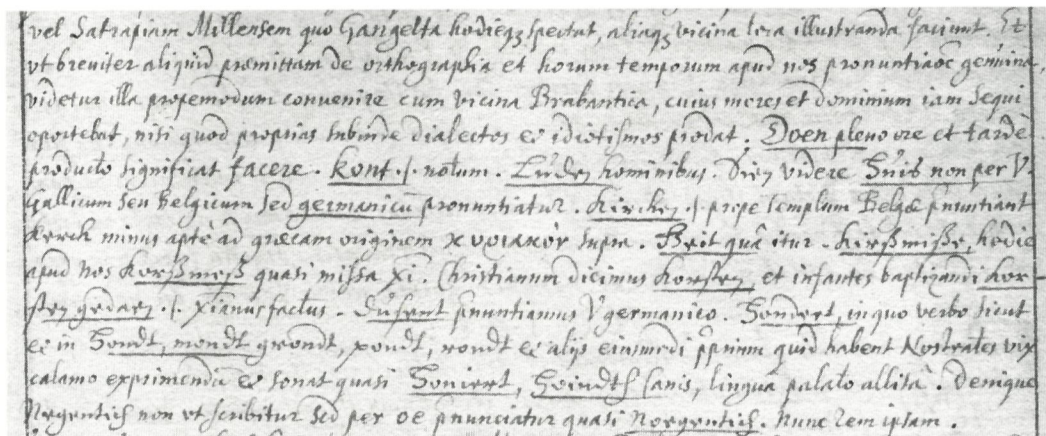 vel Satrapiam Millensem quo Gangelta hodieq₃ spectat, aliaq₃ vicina loca illustranda faciunt. Et
vt breuiter aliquid præmittam de orthographia et horum temporum apud nos pronuntiaõe genuina,
videtur illa propemodum convenire cum vicina Brabantica, cuius mores et dominium iam sequi
oportebat, nisi quod proprias subinde dialectos et idiotismos prodat. Doen pleno ore et tardè
producto significat facere. Kont .|. notum. Lúden hominibus. Sien videre Húis non per V.
Gallicum seu Belgicum sed germanicũ pronuntiatur. Kircken .|. prope templum Belgæ ꝓnuntiant
Kerck minus aptè ad græcam originem κυριακὸν supra. Beit quâ itur. Kirßmiße, hodie
apud nos Korßmeß quasi missa Xi. Christianum dicimus Korsten et infantes baptizandi Kor
sten gedaen .|. Xianus factus. Dúsent ꝓnuntiamus V germanico. Hondert, in quo verbo sicut
et in Hondt, mondt grondt, pondt, rondt et alijs eiusmodi ꝓprium quid habent Nostrates vix
calamo exprimendũ et sonat quasi Honiert, Hoindt canis, lingua palato allisâ. Denique
Negentich non vt scribitur sed per oe ꝓnunciatur quasi Noegentich. Nunc rem ipsam.